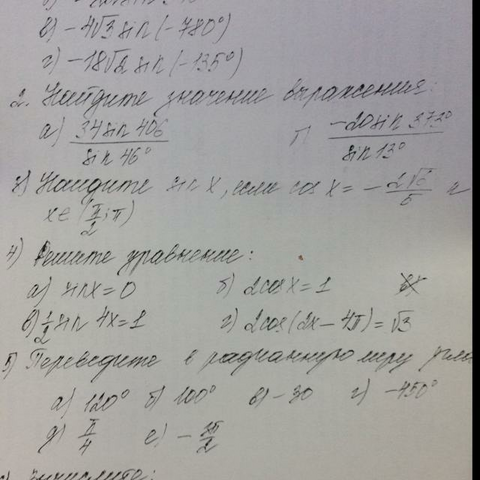 в) -4√3 sin(-780°)
г) -18√2 sin(-135°)
2. Найдите значение выражения:
а) 34 sin 406 / sin 46° -20 sin 373° / sin 13°
3) Найдите sin x, если cos x = - 2√6/5 и
x ∈ (π/2; π)
4) Решите уравнение:
а) sin x = 0 б) 2cos x = 1
в) 1/2 sin 4x = 1 г) 2cos(2x - 4π) = √3
5) Переведите в радианную меру углы
а) 120° б) 100° в) -30 г) -450°
д) π/4 е) -